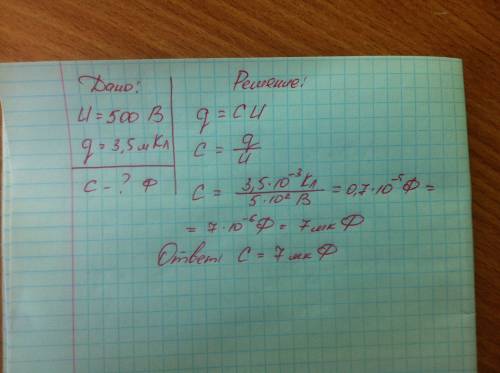 Дано:
U = 500 В
q = 3,5 мКл
C - ? Ф
Решение:
q = CU
C = q/U
C = 3,5·10⁻³ Кл / 5·10² В = 0,7·10⁻⁵ Ф =
= 7·10⁻⁶ Ф = 7 мкФ
Ответ: C = 7 мкФ